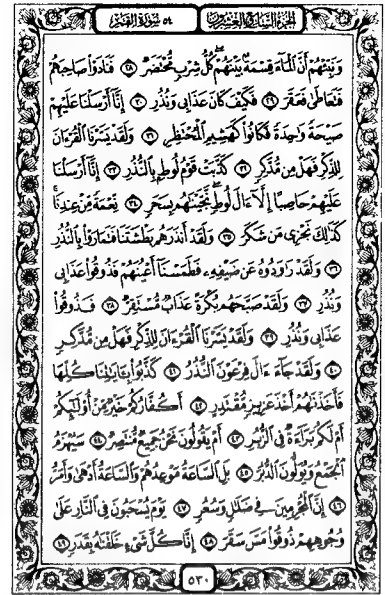 الجزء السابع والعشرون ٥٤ سورة القمر
وَنَبِّئْهُمْ أَنَّ الْمَاءَ قِسْمَةٌ بَيْنَهُمْ كُلُّ شِرْبٍ مُّحْتَضَرٌ ٢٨ فَنَادَوْا صَاحِبَهُمْ
فَتَعَاطَىٰ فَعَقَرَ ٢٩ فَكَيْفَ كَانَ عَذَابِي وَنُذُرِ ٣٠ إِنَّا أَرْسَلْنَا عَلَيْهِمْ
صَيْحَةً وَاحِدَةً فَكَانُوا كَهَشِيمِ الْمُحْتَظِرِ ٣١ وَلَقَدْ يَسَّرْنَا الْقُرْءَانَ
لِلذِّكْرِ فَهَلْ مِن مُّدَّكِرٍ ٣٢ كَذَّبَتْ قَوْمُ لُوطٍ بِالنُّذُرِ ٣٣ إِنَّا أَرْسَلْنَا
عَلَيْهِمْ حَاصِبًا إِلَّا ءَالَ لُوطٍ نَّجَّيْنَاهُم بِسَحَرٍ ٣٤ نِّعْمَةً مِّنْ عِندِنَا
كَذَٰلِكَ نَجْزِي مَن شَكَرَ ٣٥ وَلَقَدْ أَنذَرَهُم بَطْشَتَنَا فَتَمَارَوْا بِالنُّذُرِ
٣٦ وَلَقَدْ رَاوَدُوهُ عَن ضَيْفِهِ فَطَمَسْنَا أَعْيُنَهُمْ فَذُوقُوا عَذَابِي
وَنُذُرِ ٣٧ وَلَقَدْ صَبَّحَهُم بُكْرَةً عَذَابٌ مُّسْتَقِرٌّ ٣٨ فَذُوقُوا
عَذَابِي وَنُذُرِ ٣٩ وَلَقَدْ يَسَّرْنَا الْقُرْءَانَ لِلذِّكْرِ فَهَلْ مِن مُّدَّكِرٍ
٤٠ وَلَقَدْ جَاءَ ءَالَ فِرْعَوْنَ النُّذُرُ ٤١ كَذَّبُوا بِـَٔايَاتِنَا كُلِّهَا
فَأَخَذْنَاهُمْ أَخْذَ عَزِيزٍ مُّقْتَدِرٍ ٤٢ أَكُفَّارُكُمْ خَيْرٌ مِّنْ أُولَٰئِكُمْ
أَمْ لَكُم بَرَاءَةٌ فِي الزُّبُرِ ٤٣ أَمْ يَقُولُونَ نَحْنُ جَمِيعٌ مُّنتَصِرٌ ٤٤ سَيُهْزَمُ
الْجَمْعُ وَيُوَلُّونَ الدُّبُرَ ٤٥ بَلِ السَّاعَةُ مَوْعِدُهُمْ وَالسَّاعَةُ أَدْهَىٰ وَأَمَرُّ
٤٦ إِنَّ الْمُجْرِمِينَ فِي ضَلَالٍ وَسُعُرٍ ٤٧ يَوْمَ يُسْحَبُونَ فِي النَّارِ عَلَىٰ
وُجُوهِهِمْ ذُوقُوا مَسَّ سَقَرَ ٤٨ إِنَّا كُلَّ شَيْءٍ خَلَقْنَاهُ بِقَدَرٍ ٤٩
٥٣٠